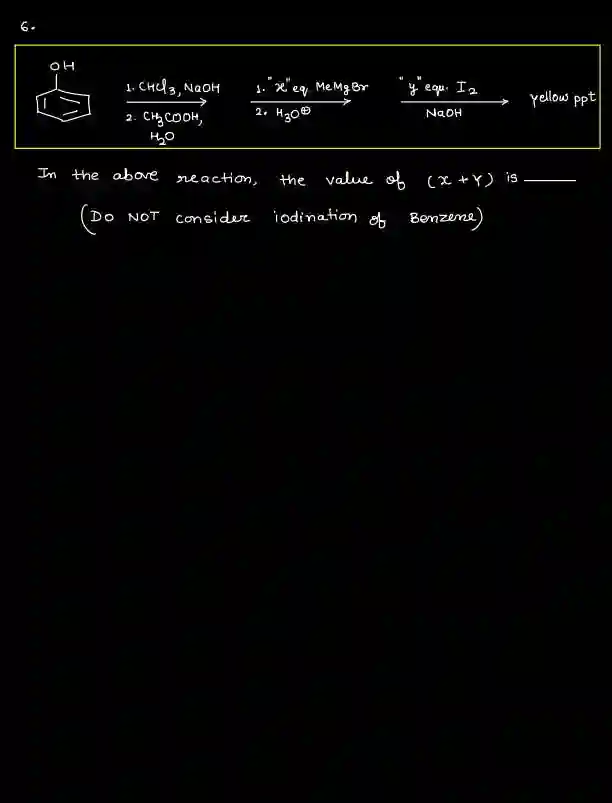 6.
OH
1. CHCl3, NaOH
2. CH3COOH,
H2O
1. "x" eq MeMgBr
2. H3O⊕
"y" equ. I2
NaOH
yellow ppt
In the above reaction, the value of (x + Y) is ______
(DO NOT consider iodination of Benzene)